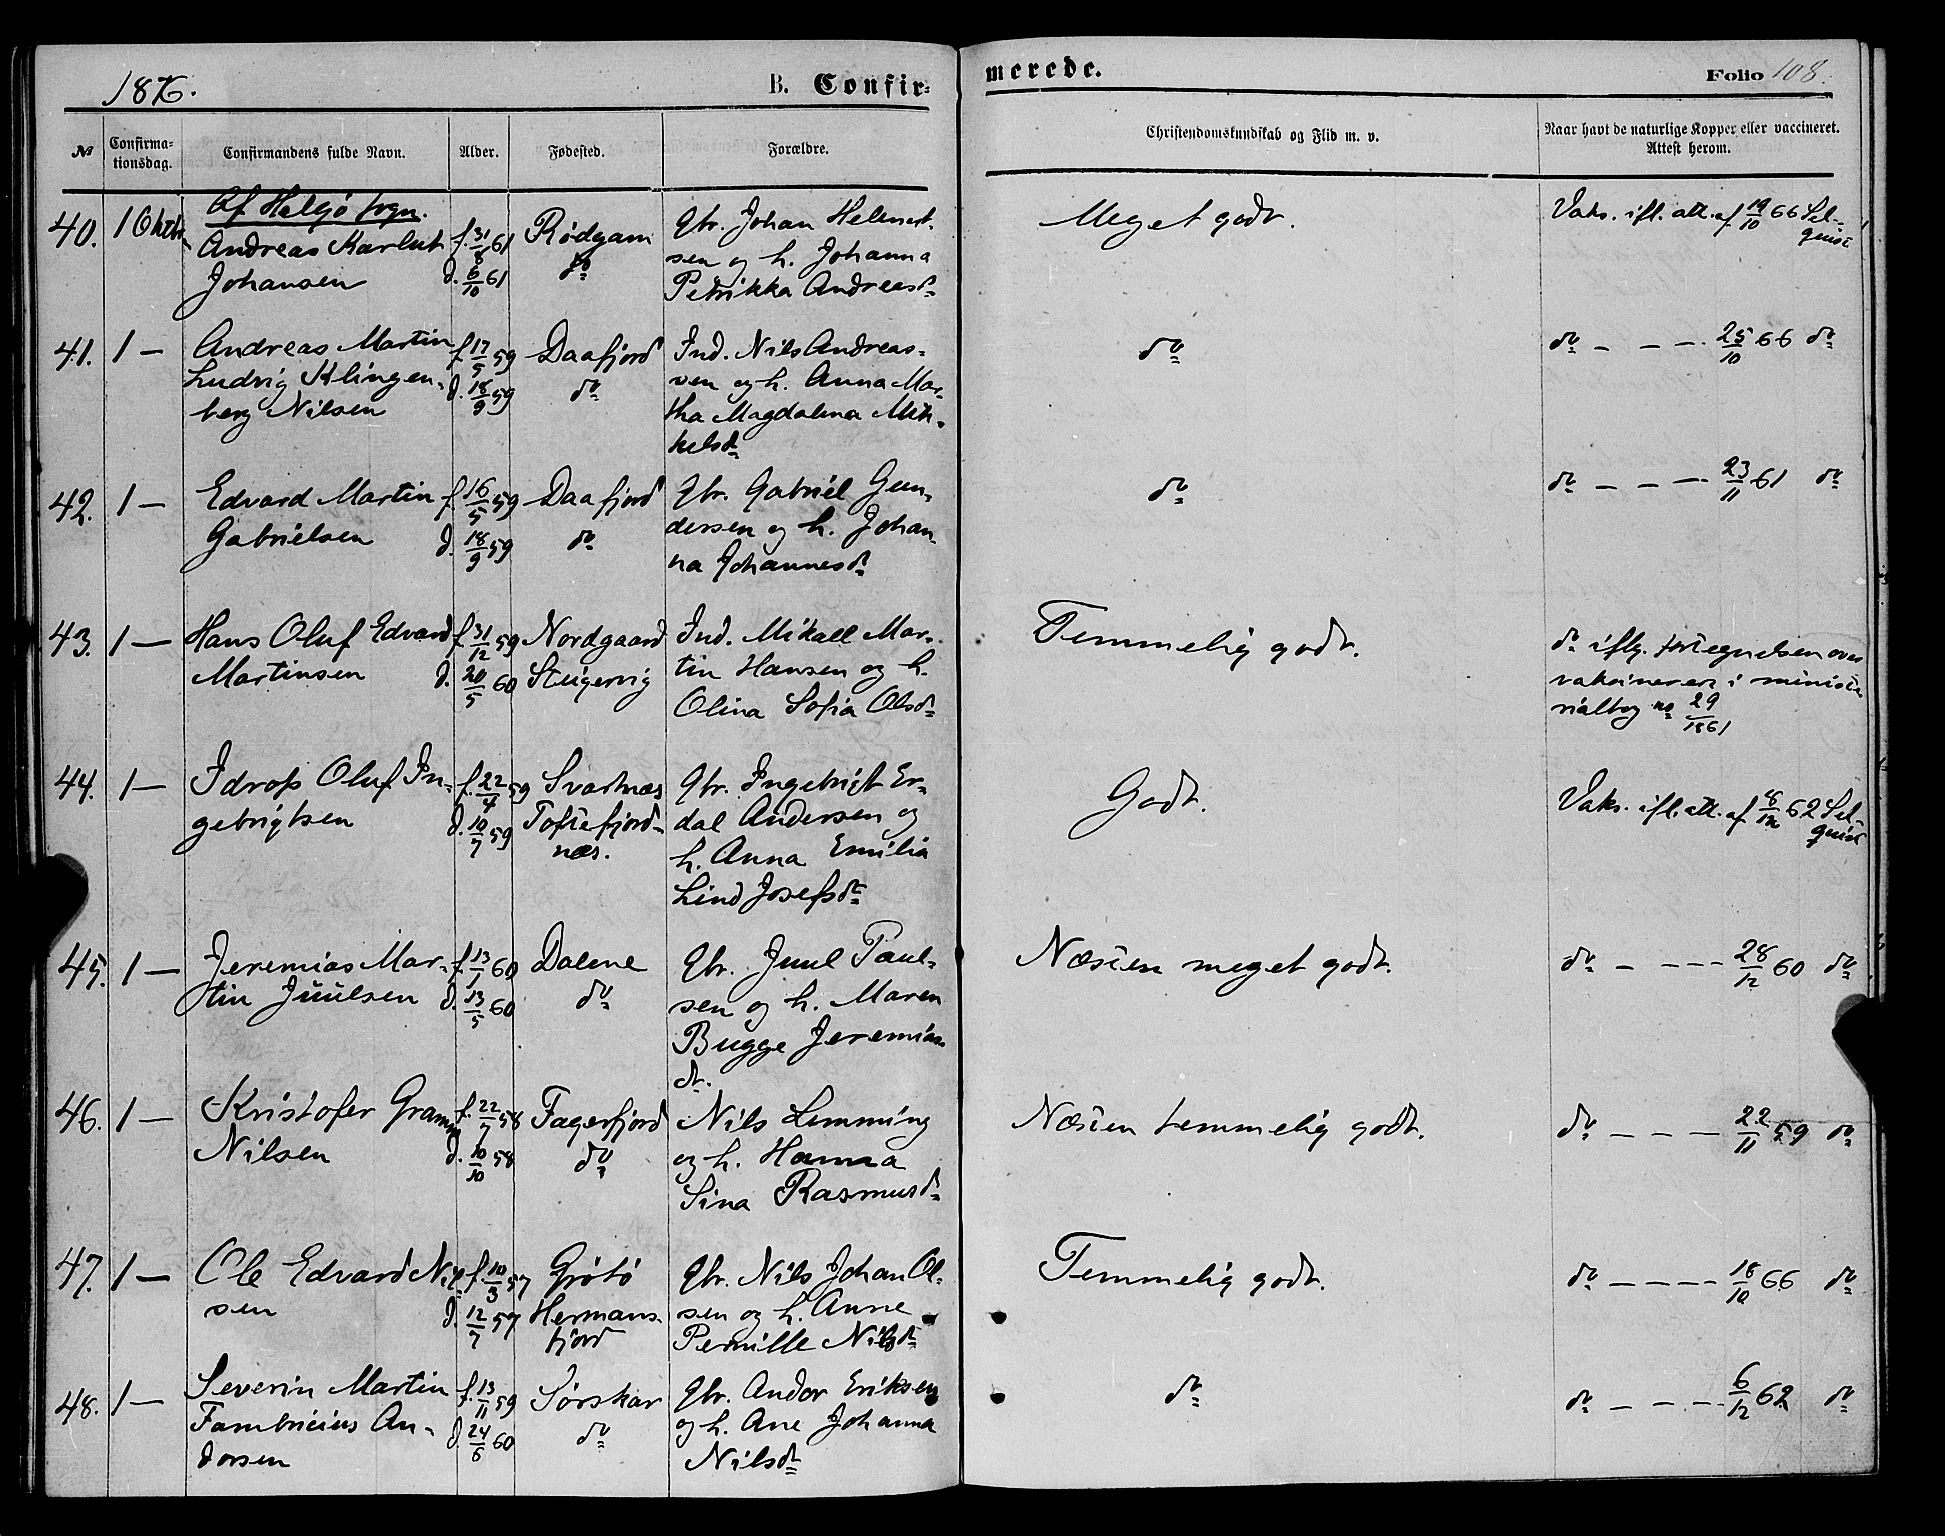 1876.
B. Confir-
merede.
Folio 108.
№
Confirma-
tionsdag.
Confirmandens fulde Navn.
Alder.
Fødested.
Forældre.
Christendomskundskab og Flid m. v.
Naar havt de naturlige Kopper eller vaccineret.
Attest herom.
Af Helgø sogn.
40. 1 Oktbr
Andreas Karlut
Johansen
f. 31/8 61
d. 6/10 61
Rødgam
do
Gbr. Johan Helmert-
sen og h. Johanna
Petrikka Andreasdr
Meget godt.
Vaks. ifl. att. af 19/10 66 Sel-
quist
41. 1 —
Andreas Martin
Ludvig Klingen-
berg Nilsen
f. 17/5 59
d. 18/9 59
Daafjord
do
Ind. Nils Andreas-
sen og h. Anna Mar-
tha Magdalena Mik-
kelsdr
do
do — — — 25/10 66 do
42. 1 —
Edvard Martin
Gabrielsen
f. 16/5 59
d. 18/9 59
Daafjord
do
Gbr. Gabriel Gun-
dersen og h. Johan-
na Johannesdr
do
do — — — 23/11 61 do
43. 1 —
Hans Oluf Edvard
Martinsen
f. 31/12 59
d. 20/5 60
Nordgaard
Steigervig
Ind. Mikael Mar-
tin Hansen og h.
Olina Sofia Olsdr
Temmelig godt.
do iflg. fortegnelsen over
vaksinerede i ministe
rialbog no 29/1861
44. 1 —
Idrop Oluf In-
gebrigtsen
f. 22/4 59
d. 10/7 59
Svartnæs
Toftefjord-
næs.
Gbr. Ingebrigt Er-
dal Andersen og
h. Anna Emilia
Lind Josefsdr
Godt.
Vaks. ifl. att. af 8/12 62 Sel-
quist
45. 1 —
Jeremias Mar-
tin Juulsen
f. 13/1 60
d. 13/5 60
Dalene
do
Gbr. Juul Paul-
sen og h. Maren
Bugge Jeremias-
dr.
Næsten meget godt.
do — — — — 28/12 60 do
46. 1 —
Kristofer Gramm
Nilsen
f. 22/7 58
d. 10/10 58
Fagerfjord
do
Nils Lemming
og h. Hanna
Sina Rasmusdr
Næsten temmelig godt.
do — — — — 22/11 59 do
47. 1 —
Ole Edvard Nil-
sen
f. 10/3 57
d. 12/7 57
Grøtø
Hermans-
fjord
Gbr. Nils Johan Ol-
sen og h. Anne
Pernille Nilsdr
Temmelig godt.
do — — — — 18/10 66 do
48. 1 —
Severin Martin
Fambricius An-
dorsen
f. 13/11 59
d. 24/6 60
Sørskar
do
Gbr. Andor Eriksen
og h. Ane Johanna
Nilsdr
do
do — — — — 6/12 62 do